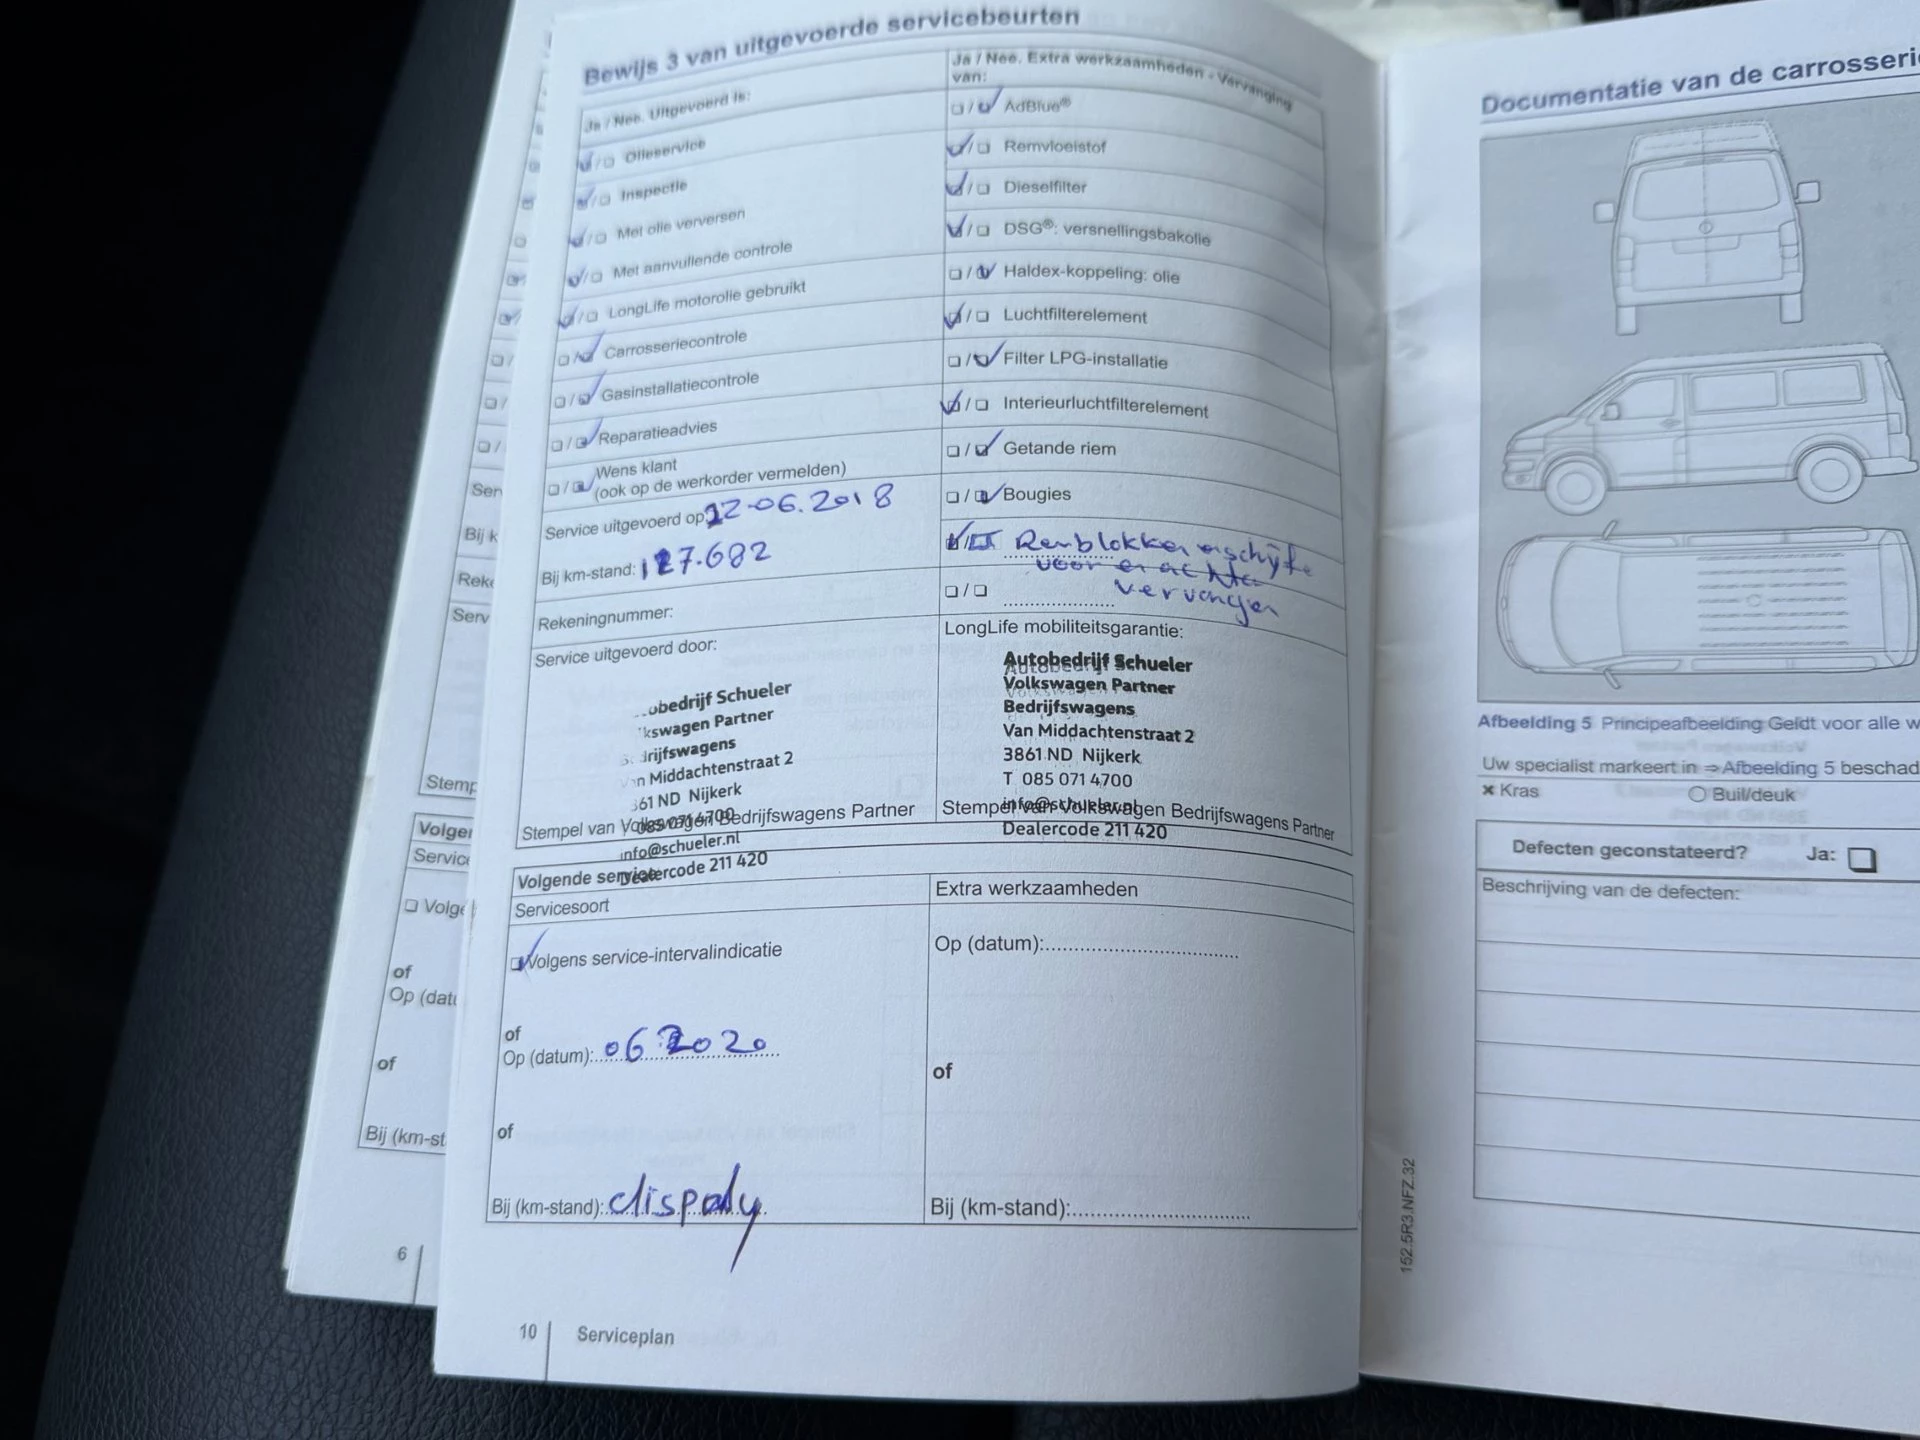 Bewijs 3 van uitgevoerde servicebeurten
Ja / Nee. Uitgevoerd is:
☑/☐ Olieservice
☑/☐ Inspectie
☑/☐ Met olie verversen
☑/☐ Met aanvullende controle
☑/☐ LongLife motorolie gebruikt
☐/☑ Carrosseriecontrole
☐/☑ Gasinstallatiecontrole
☐/☑ Reparatieadvies
☐/☑ Wens klant
(ook op de werkorder vermelden)
Service uitgevoerd op 12-06.2018
Bij km-stand: 127.682
Rekeningnummer:
Service uitgevoerd door:
obedrijf Schueler
kswagen Partner
drijfswagens
Van Middachtenstraat 2
61 ND Nijkerk
085 071 4700
Stempel van Volkswagen Bedrijfswagens Partner
info@schueler.nl
Dealercode 211 420
Ja / Nee. Extra werkzaamheden - Vervanging
van:
☐/☑ AdBlue®
☑/☐ Remvloeistof
☑/☐ Dieselfilter
☑/☐ DSG®: versnellingsbakolie
☐/☑ Haldex-koppeling: olie
☑/☐ Luchtfilterelement
☐/☑ Filter LPG-installatie
☑/☐ Interieurluchtfilterelement
☐/☑ Getande riem
☐/☑ Bougies
☑/☐ Remblokken en schijfe
voor en achter
☐/☐ vervangen
LongLife mobiliteitsgarantie:
Autobedrijf Schueler
Volkswagen Partner
Bedrijfswagens
Van Middachtenstraat 2
3861 ND Nijkerk
T 085 071 4700
info@schueler.nl
Stempel van Volkswagen Bedrijfswagens Partner
Dealercode 211 420
Volgende service
Servicesoort
☑ Volgens service-intervalindicatie
of
Op (datum): 06 2020
of
Bij (km-stand): dispaly
Extra werkzaamheden
Op (datum):
of
Bij (km-stand):
10 Serviceplan
Ser
Bij k
Reke
Serv
Stemp
Volge
Service
☐ Volge
of
Op (dat
of
Bij (km-st
6
Documentatie van de carrosseri
Afbeelding 5 Principeafbeelding Geldt voor alle w
Uw specialist markeert in ⇒ Afbeelding 5 beschad
× Kras
○ Buil/deuk
Defecten geconstateerd? Ja: ☐
Beschrijving van de defecten:
152.5R3.NFZ.32